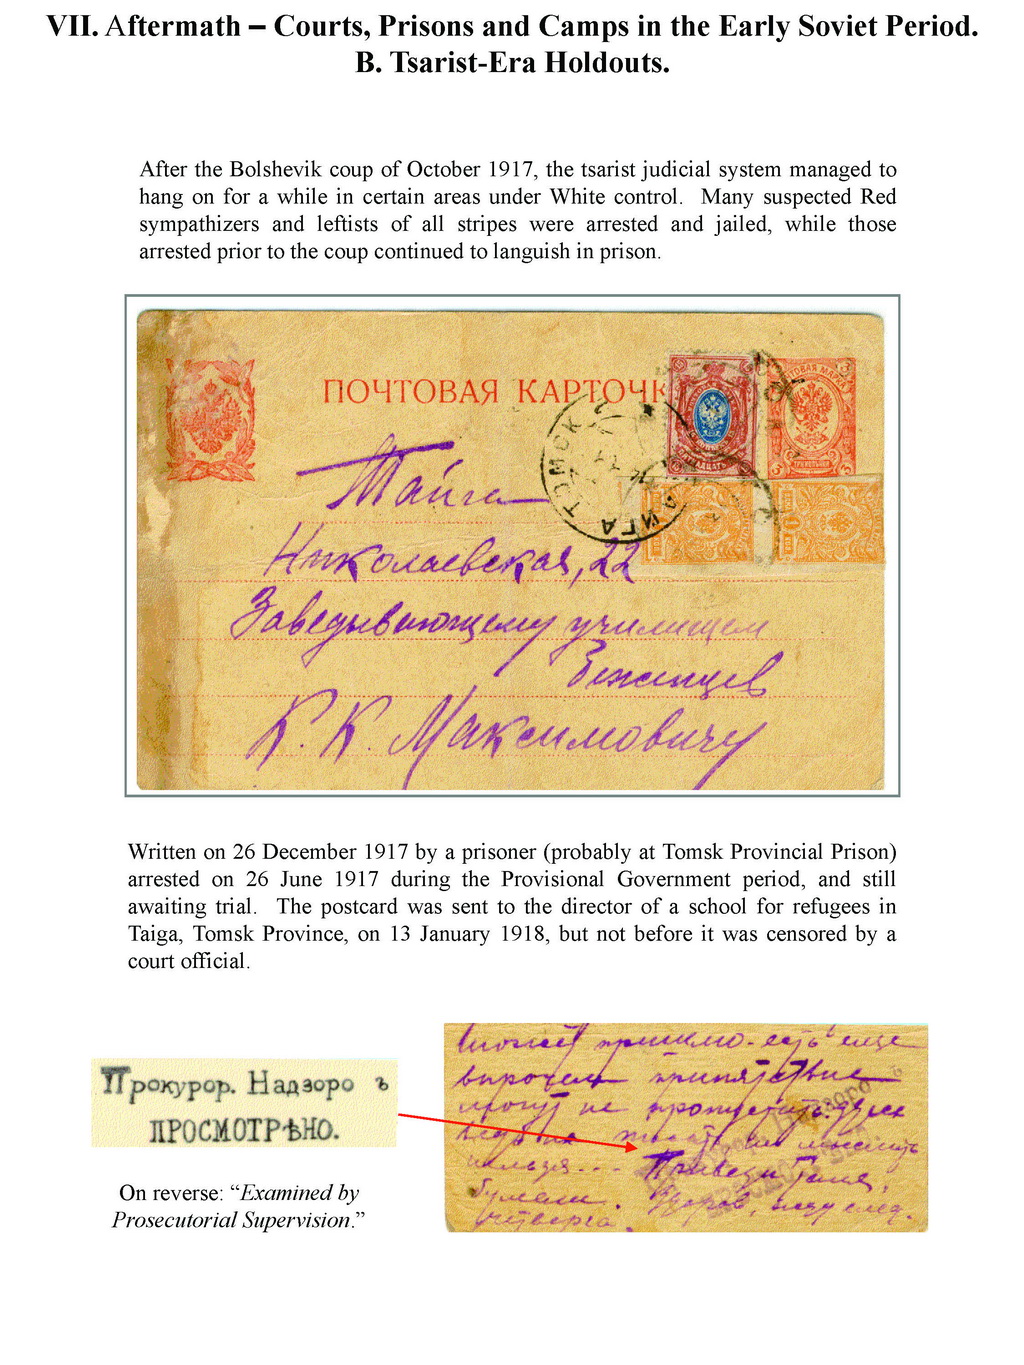 VII. Aftermath – Courts, Prisons and Camps in the Early Soviet Period.
B. Tsarist-Era Holdouts.
After the Bolshevik coup of October 1917, the tsarist judicial system managed to
hang on for a while in certain areas under White control. Many suspected Red
sympathizers and leftists of all stripes were arrested and jailed, while those
arrested prior to the coup continued to languish in prison.
ПОЧТОВАЯ КАРТОЧК
ТОМСК
ТАЙГА
Тайга
Николаевская, 22
Заведывающему училищем
Беженцев
К. К. Максимовичу
Written on 26 December 1917 by a prisoner (probably at Tomsk Provincial Prison)
arrested on 26 June 1917 during the Provisional Government period, and still
awaiting trial. The postcard was sent to the director of a school for refugees in
Taiga, Tomsk Province, on 13 January 1918, but not before it was censored by a
court official.
Прокурор. Надзоро ъ
ПРОСМОТРѢНО.
On reverse: “Examined by
Prosecutorial Supervision.”
могут не пропустить
нельзя...
бумаги. Здоров, жду след.
четверга.